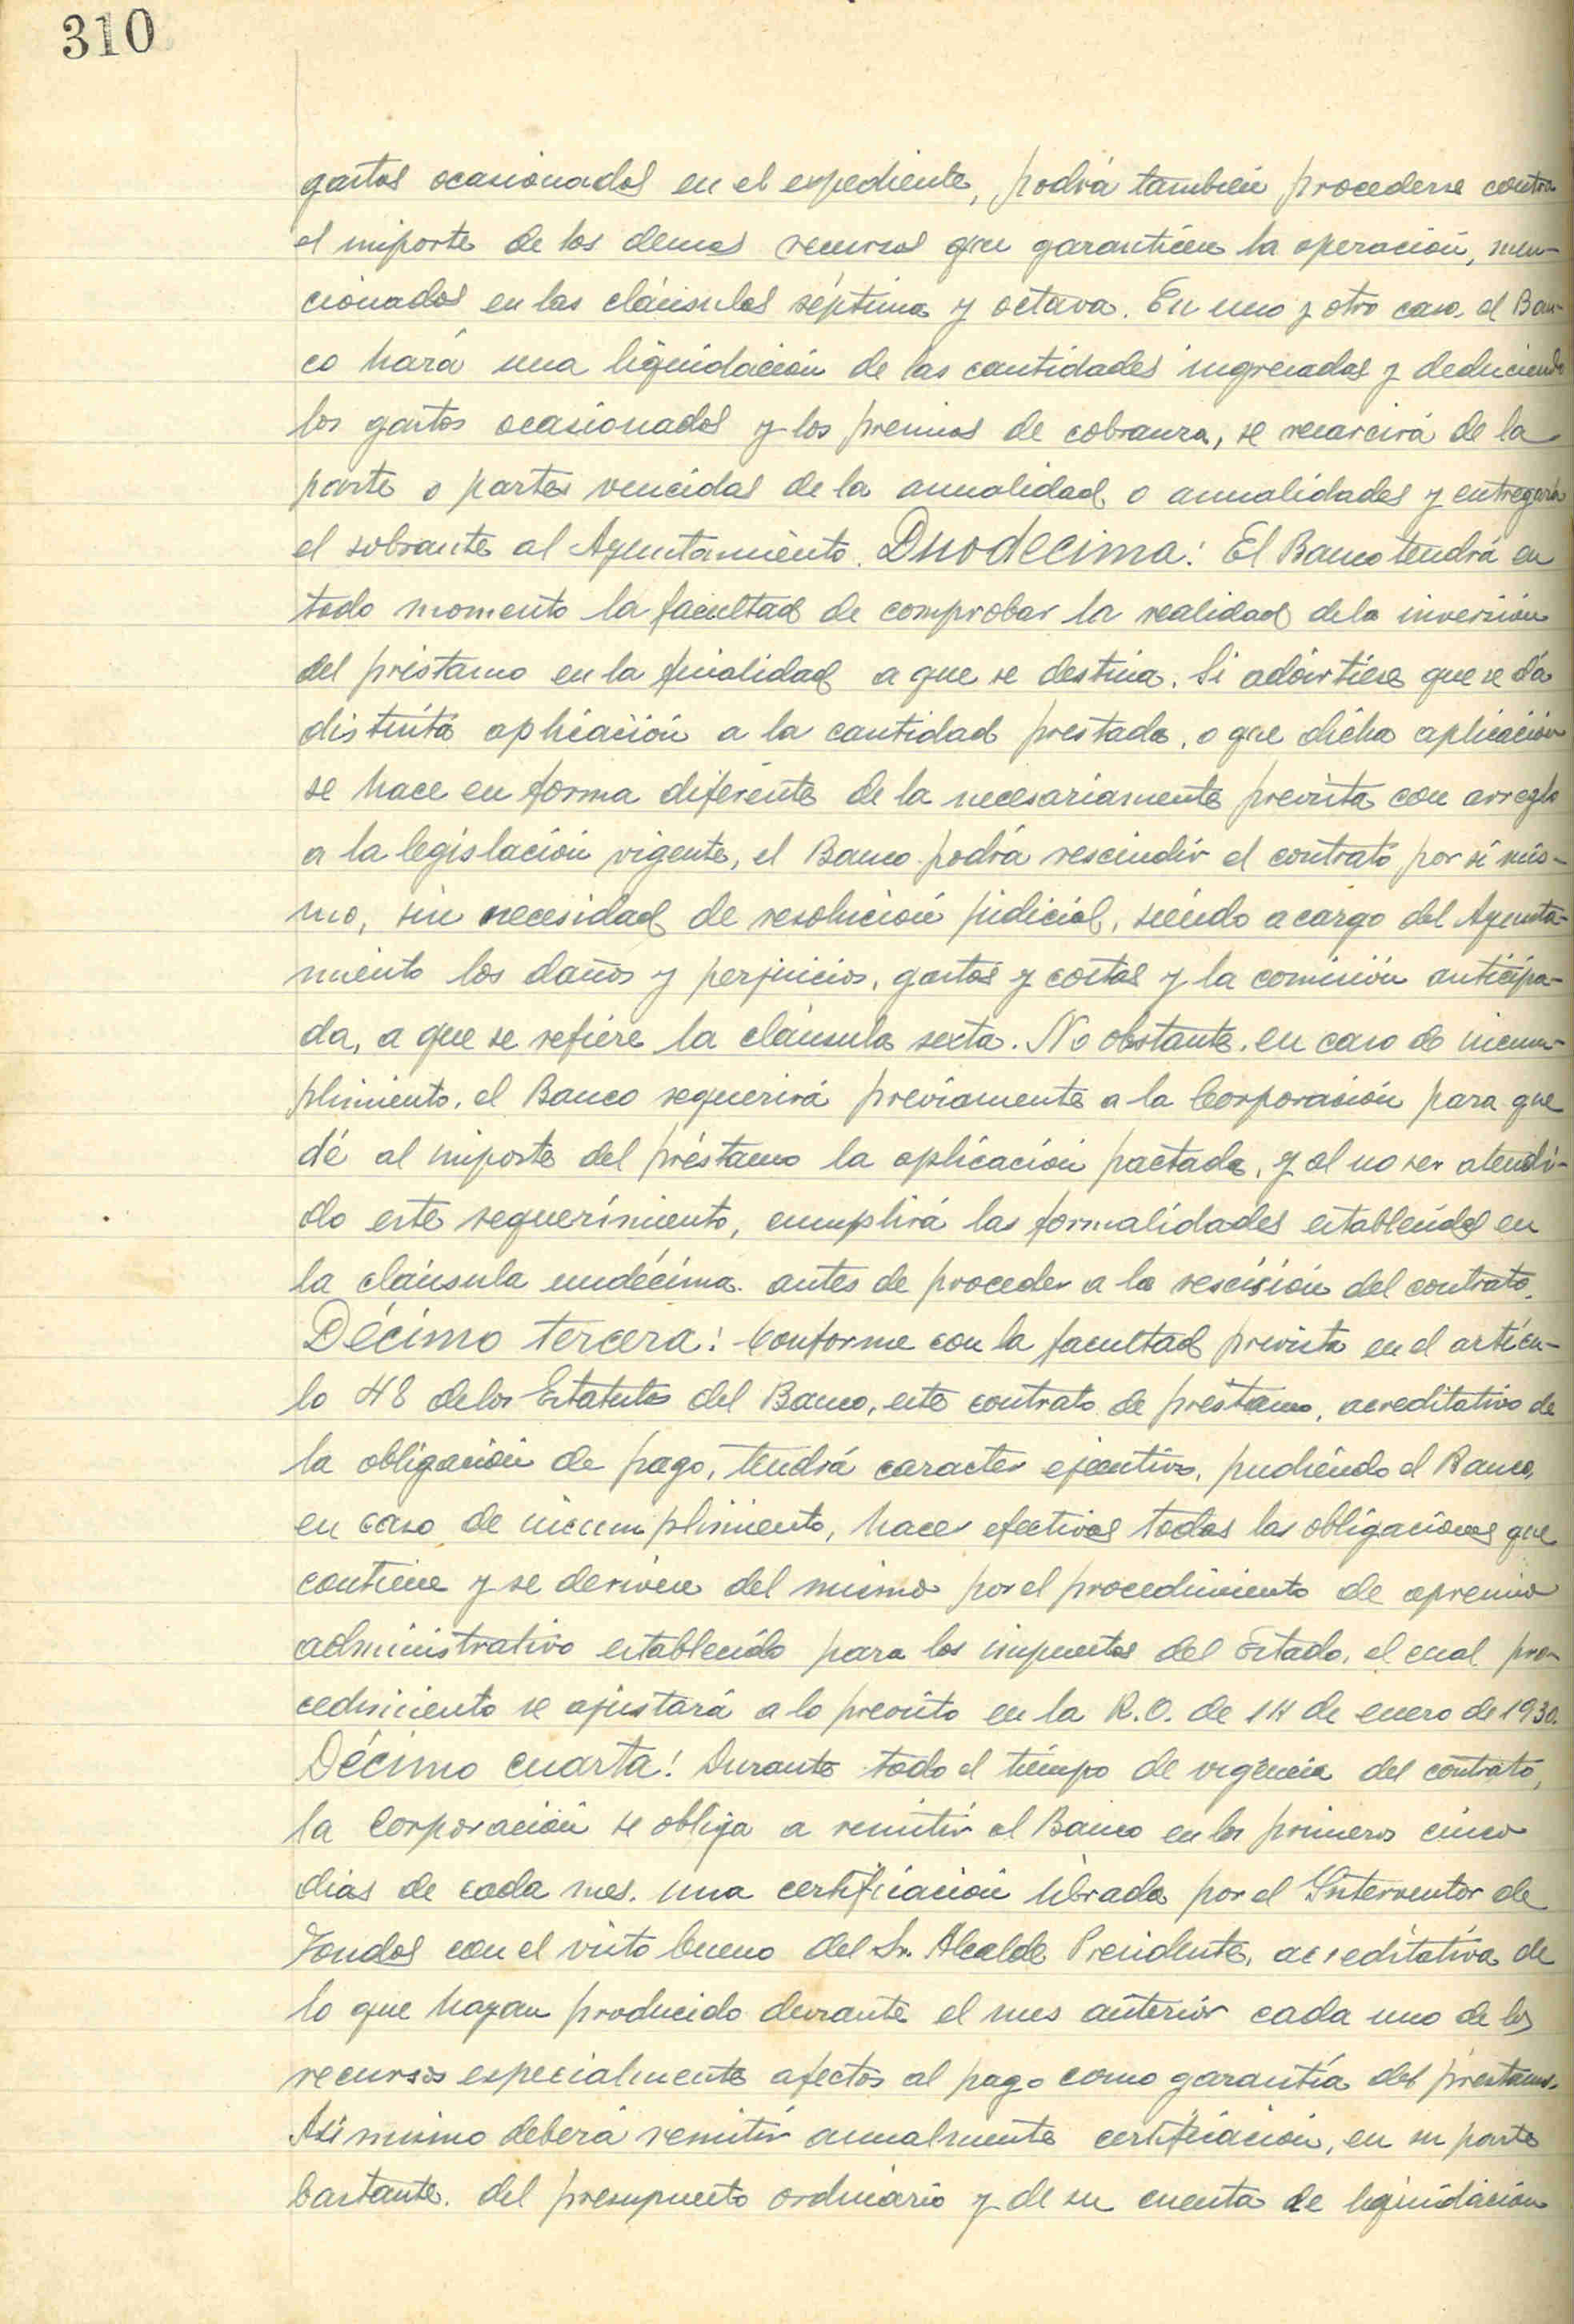 310
gastos ocasionados en el expediente, podrá también procederse contra
el importe de los demas recursos que garanticen la operación, men-
cionados en las cláusulas séptima y octava. En uno y otro caso, el Ban-
co hará una liquidación de las cantidades ingresadas y deduciendo
los gastos ocasionados y los premios de cobranza, se resarcirá de la
parte o partes vencidas de la anualidad o anualidades y entregará
el sobrante al Ayuntamiento. Duodecima: El Banco tendrá en
todo momento la facultad de comprobar la realidad de la inversión
del préstamo en la finalidad a que se destina. Si advirtiese que se dá
distinta aplicación a la cantidad prestada, o que dicha aplicación
se hace en forma diferente de la necesariamente prevista con arreglo
a la legislación vigente, el Banco podrá rescindir el contrato, por sí mis-
mo, sin necesidad de resolución judicial, siendo a cargo del Ayunta-
miento los daños y perjuicios, gastos y costas y la comisión anticipa-
da, a que se refiere la cláusula sexta. No obstante, en caso de incum-
plimiento, el Banco requerirá previamente a la Corporación para que
dé al importe del préstamo la aplicación pactada, y al no ser atendi-
do este requerimiento, cumplirá las formalidades establecidas en
la cláusula undécima. antes de proceder a la rescisión del contrato.
Décimo tercera: Conforme con la facultad prevista en el artícu-
lo 48 de los Estatutos del Banco, este contrato de préstamo, acreditativo de
la obligación de pago, tendrá caracter ejecutivo, pudiendo el Banco,
en caso de incumplimiento, hacer efectivas todas las obligaciones que
contiene y se deriven del mismo por el procedimiento de apremio
administrativo establecido para los impuestos del Estado, el cual pro-
cedimiento se ajustará a lo previsto en la R.O. de 14 de enero de 1930.
Décimo cuarta: Durante todo el tiempo de vigencia del contrato,
la Corporación se obliga a remitir al Banco en los primeros cinco
dias de cada mes. una certificación librada por el Interventor de
Fondos con el visto bueno del Sr. Alcalde Presidente, acreditativa de
lo que hayan producido durante el mes anterior cada uno de los
recursos especialmente afectos al pago como garantía del préstamo.
Asi mismo deberá remitir anualmente certificación, en su parte
bastante. del presupuesto ordinario y de su cuenta de liquidación